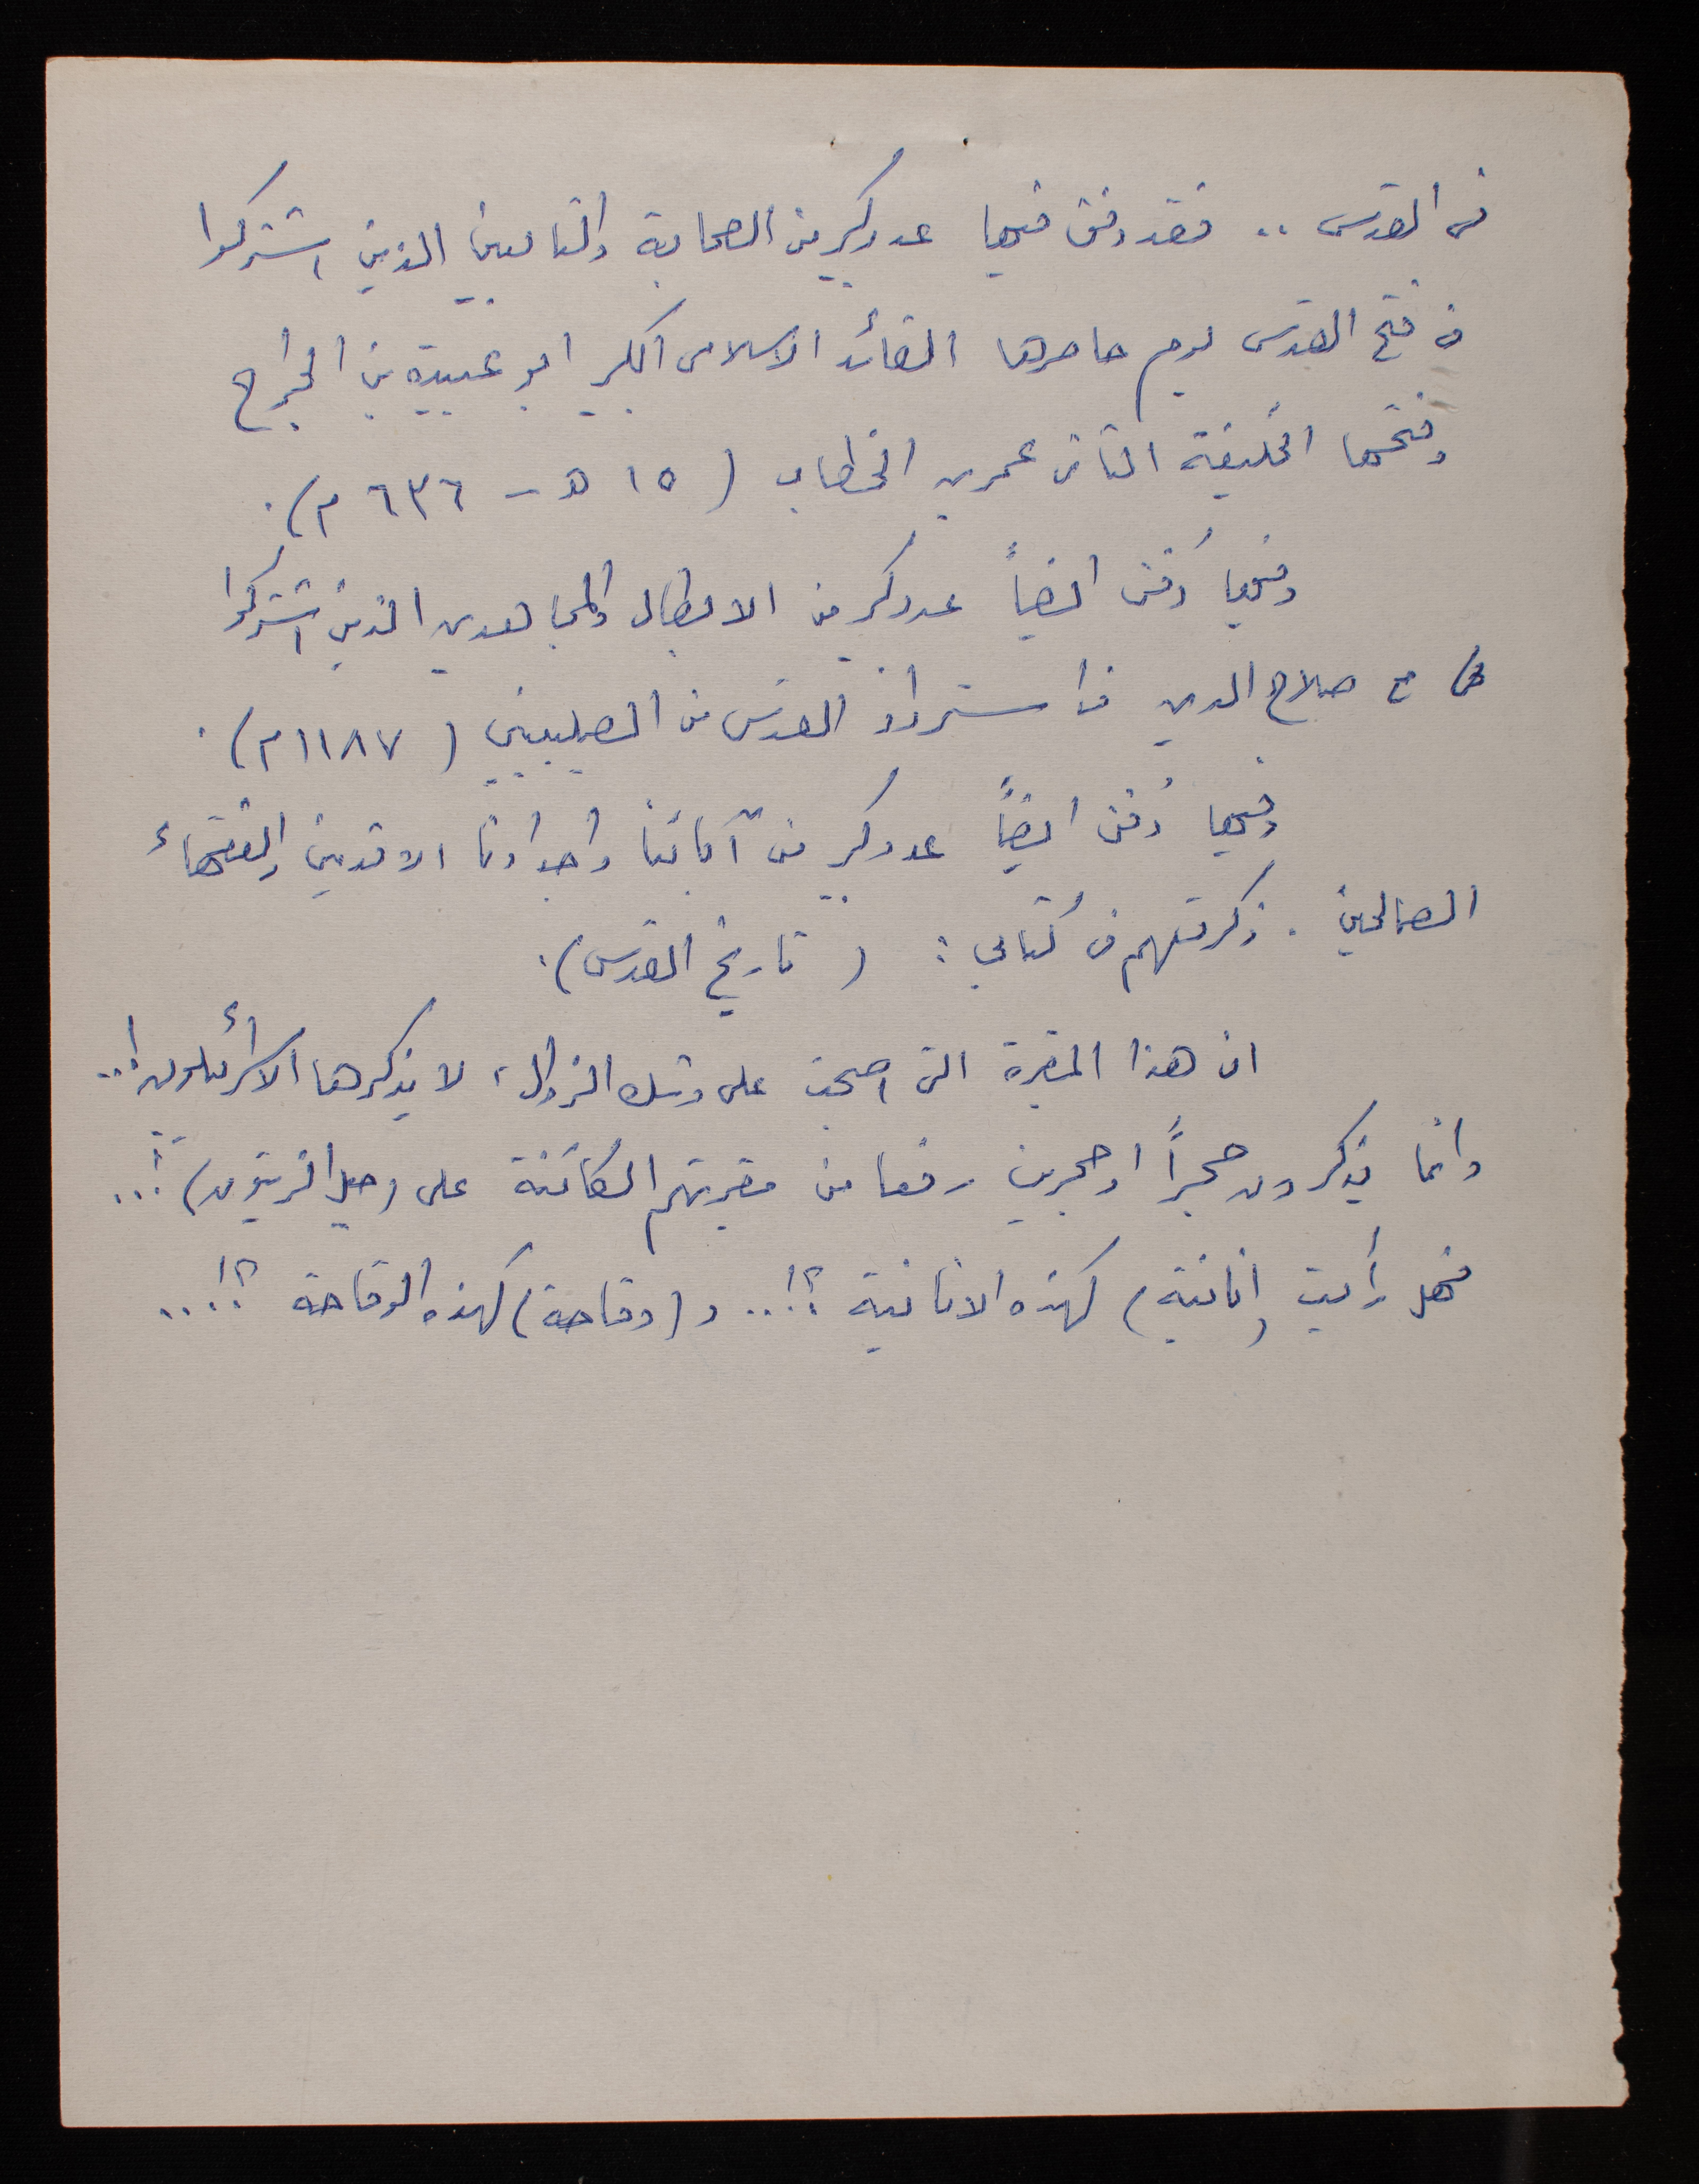 في القدس .. فقد دفن فيها عدد كبير من الصحابة والتابعين الذين اشتركوا
في فتح القدس يوم حاصرها القائد الاسلامي الكبير ابو عبيدة بن الجراح
وفتحها الخليفة الثاني عمر بن الخطاب ( ١٥ هـ - ٦٣٦ م ) .
وفيها دُفن ايضاً عدد كبير من الابطال والمجاهدين الذين اشتركوا
مع صلاح الدين في استرداد القدس من الصليبيين ( ١١٨٧ م ) .
وفيها دُفن ايضاً عدد كبير من آبائنا واجدادنا الاقدمين والفقهاء
الصالحين . ذكرتهم في كُتابي : ( تاريخ القدس ) .
ان هذا المقبرة التي اصبحت على وشك الزوال ، لا يذكرها الاسرائيليون ! ..
وانما يذكرون حجراً او حجرين رفعا من مقبرتهم الكائنة على (جبل الزيتون) ! ...
فهل رأيت (انانية) كهذه الانانية ؟! ... و (وقاحة) كهذه الوقاحة ؟! ....